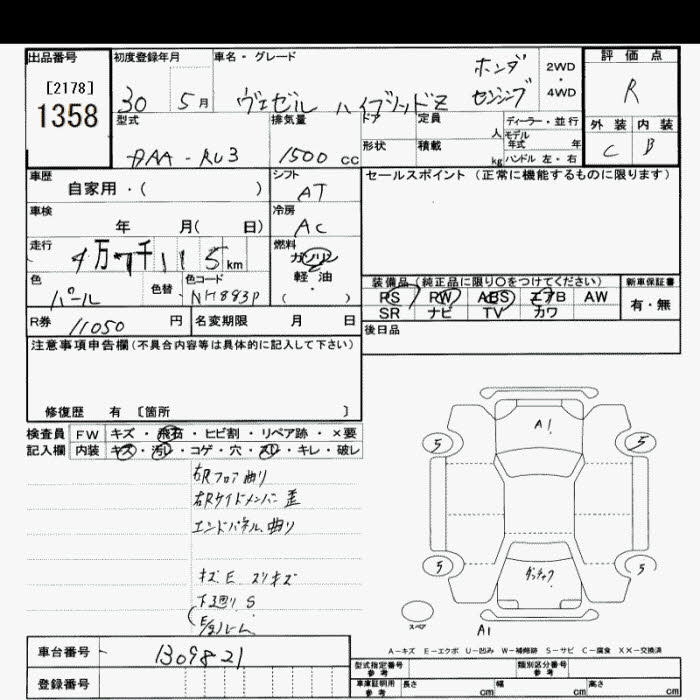 出品番号
[2178]
1358
初度登録年月
30 5 月
車名・グレード
ホンダ
ヴェゼル ハイブリッドZ センシング
2WD
・
4WD
評価点
R
外装 内装
C B
型式
DAA-RU3
排気量
1500 cc
ドア
形状
定員
人
積載
kg
ディーラー・並行
モデル年式 年
ハンドル 左・右
車歴
自家用・( )
シフト
AT
セールスポイント (正常に機能するものに限ります)
車検
年 月( 日)
冷房
AC
走行
km
燃料
ガソリン
軽・油
( )
色
パール
色替
色コード
NH883P
装備品(純正品に限り〇をつけてください)
PS RW ABS エアB AW
SR ナビ TV カワ
新車保証書
有・無
R券
11050 円
名変期限 月 日
後日品
注意事項申告欄(不具合内容等は具体的に記入して下さい)
修復歴 有 〔箇所 〕
検査員
記入欄
FW キズ・飛石・ヒビ割・リペア跡・×要
内装 キズ・汚レ・コゲ・穴・スレ・キレ・破レ
右Rフロア曲り
右Rサイドメンバー歪
エンドパネル曲り
キズ E スリキズ
下廻り S
A1
5 5
5 5
スペア
A1
A-キズ E-エクボ U-凹み W-補修跡 S-サビ C-腐食 XX-交換済
車台番号
1309821
登録番号
型式指定番号
参考
類別区分番号
参考
車庫証明用
参考
長さ cm 幅 cm 高さ cm